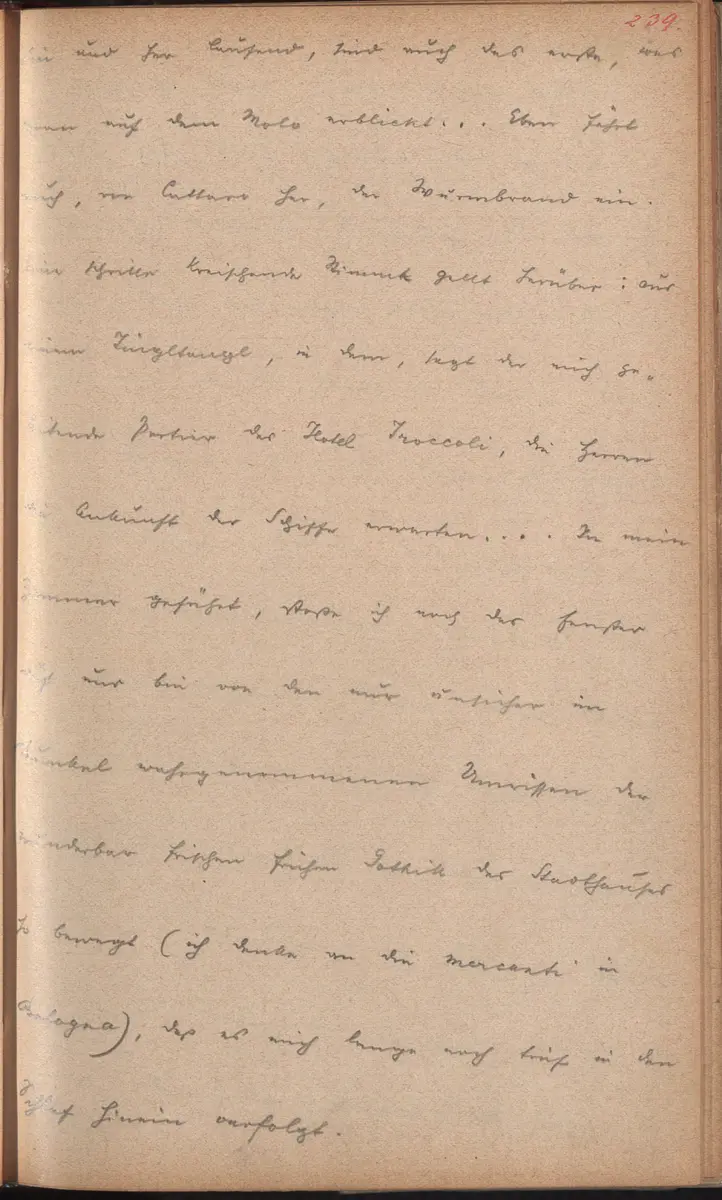 239.
hin und her laufend, sind auch das erste, was
man auf dem Molo erblickt... Eben fährt
auch, von Cattaro her, der Wurmbrand ein.
Eine schrille kreischende Stimme gellt herüber: aus
einem Tingltangl, in dem, sagt der mich ge-
leitende Portier des Hotel Troccoli, die Herren
die Ankunft der Schiffe erwarten.... In mein
Zimmer geführt, stoße ich noch das Fenster
auf und bin von den nur unsicher im
Dunkel wahrgenommenen Umrissen der
wunderbar frischen frühen Gothik des Stadthauses
so bewegt (ich denke an die Mercanti in
Bologna), daß es mich lange noch tief in den
Schlaf hinein verfolgt.